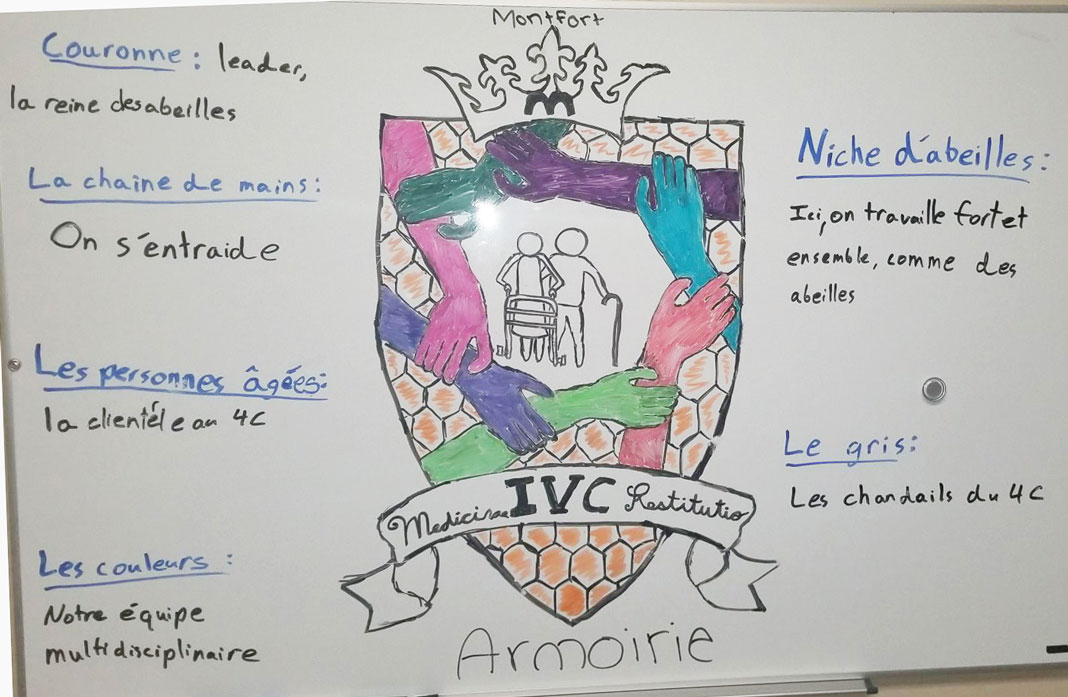 Montfort
m
Couronne : leader,
la reine des abeilles
La chaine de mains :
On s'entraide
Les personnes âgées:
la clientéle au 4C
Les couleurs :
Notre équipe
multidisciplinaire
Medicinae IVC Restitutio
Armoirie
Niche d'abeilles:
Ici, on travaille fort et
ensemble, comme des
abeilles
Le gris:
Les chandails du 4C